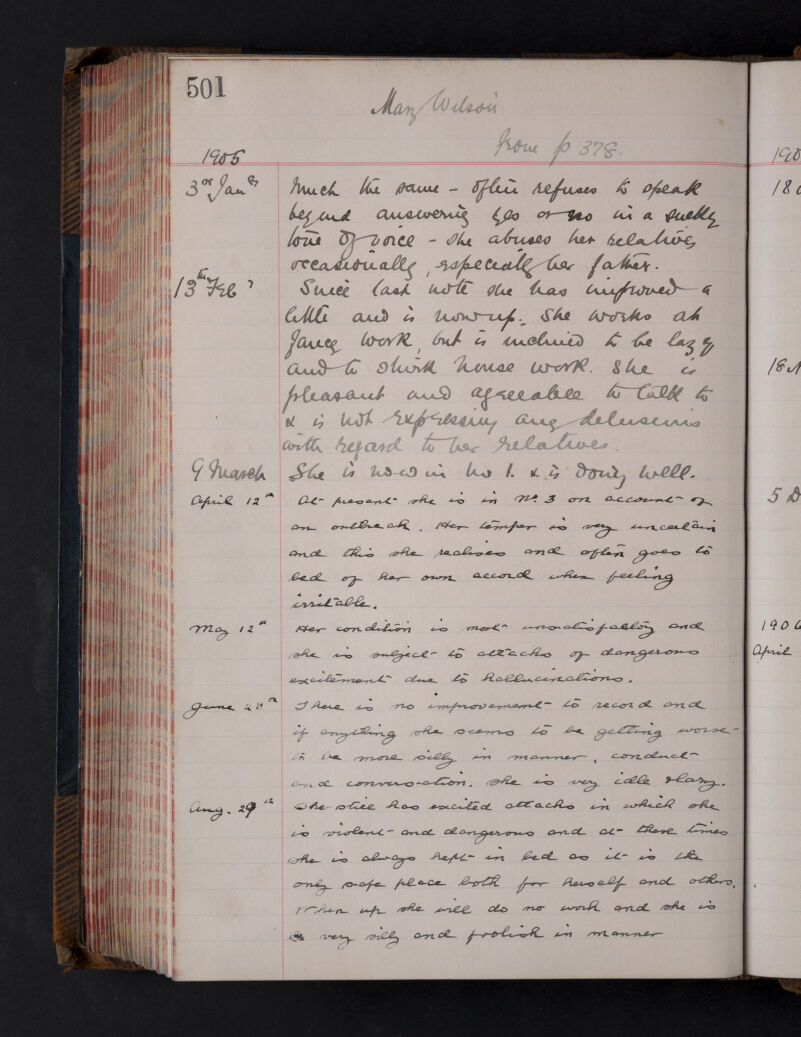 501
Mary Wilson
From p 378.
1905
3rd Jany Much the same - often refuses to speak
beyond answering yes or no in a sulky
tone of voice - she abuses her relatives
occasionally, especially her father.
13th Feby Since last note she has improved a
little and is now up. She works at
fancy work, but is inclined to be lazy
and to shirk house work. She is
pleasant and agreeable to talk to
& is not expressing any delusions
with regard to her relatives.
9 March She is now in No 1. & is doing well.
April 12th At present she is in No. 3 on account of
an outbreak. Her temper is very uncertain
and this she realises and often goes to
bed of her own accord when feeling
irritable.
May 12th Her condition is most unsatisfactory and
she is subject to attacks of dangerous
excitement due to hallucinations.
June 28th There is no improvement to record and
if anything she seems to be getting worse -
to be more silly in manner, conduct
and conversation. She is very idle & lazy.
Aug. 29th She still has excited attacks in which she
is violent and dangerous and at these times
she is always kept in bed as it is the
only safe place both for herself and others.
When up she will do no work and she is
very silly and foolish in manner
190
18
18
5 D
1906
April